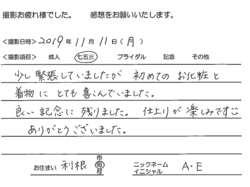 撮影お疲れ様でした。 感想をお願いいたします。
<撮影日時> 2019年 11月 11日 (月)
<撮影項目> 成人 七五三 ブライダル 記念 その他
少し緊張していましたが 初めての お化粧と
着物に とても喜んでいました。
良い記念に残りました。 仕上りが楽しみです
ありがとうございました。
お住まい 利根 市町村 ニックネーム イニシャル A・E